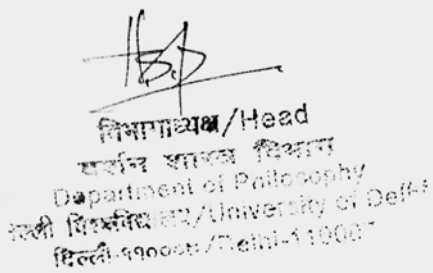 विभागाध्यक्ष/Head
दर्शन शास्त्र विभाग
Department of Philosophy
विश्वविद्यालय/University of Delhi
दिल्ली-११०००७/Delhi-110007